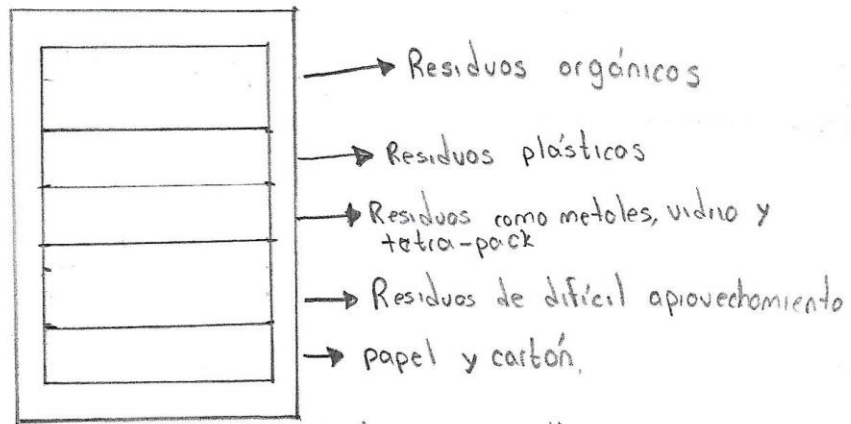 Residuos orgánicos
Residuos plásticos
Residuos como metales, vidrio y
tetra-pack
Residuos de difícil aprovechamiento
papel y cartón.